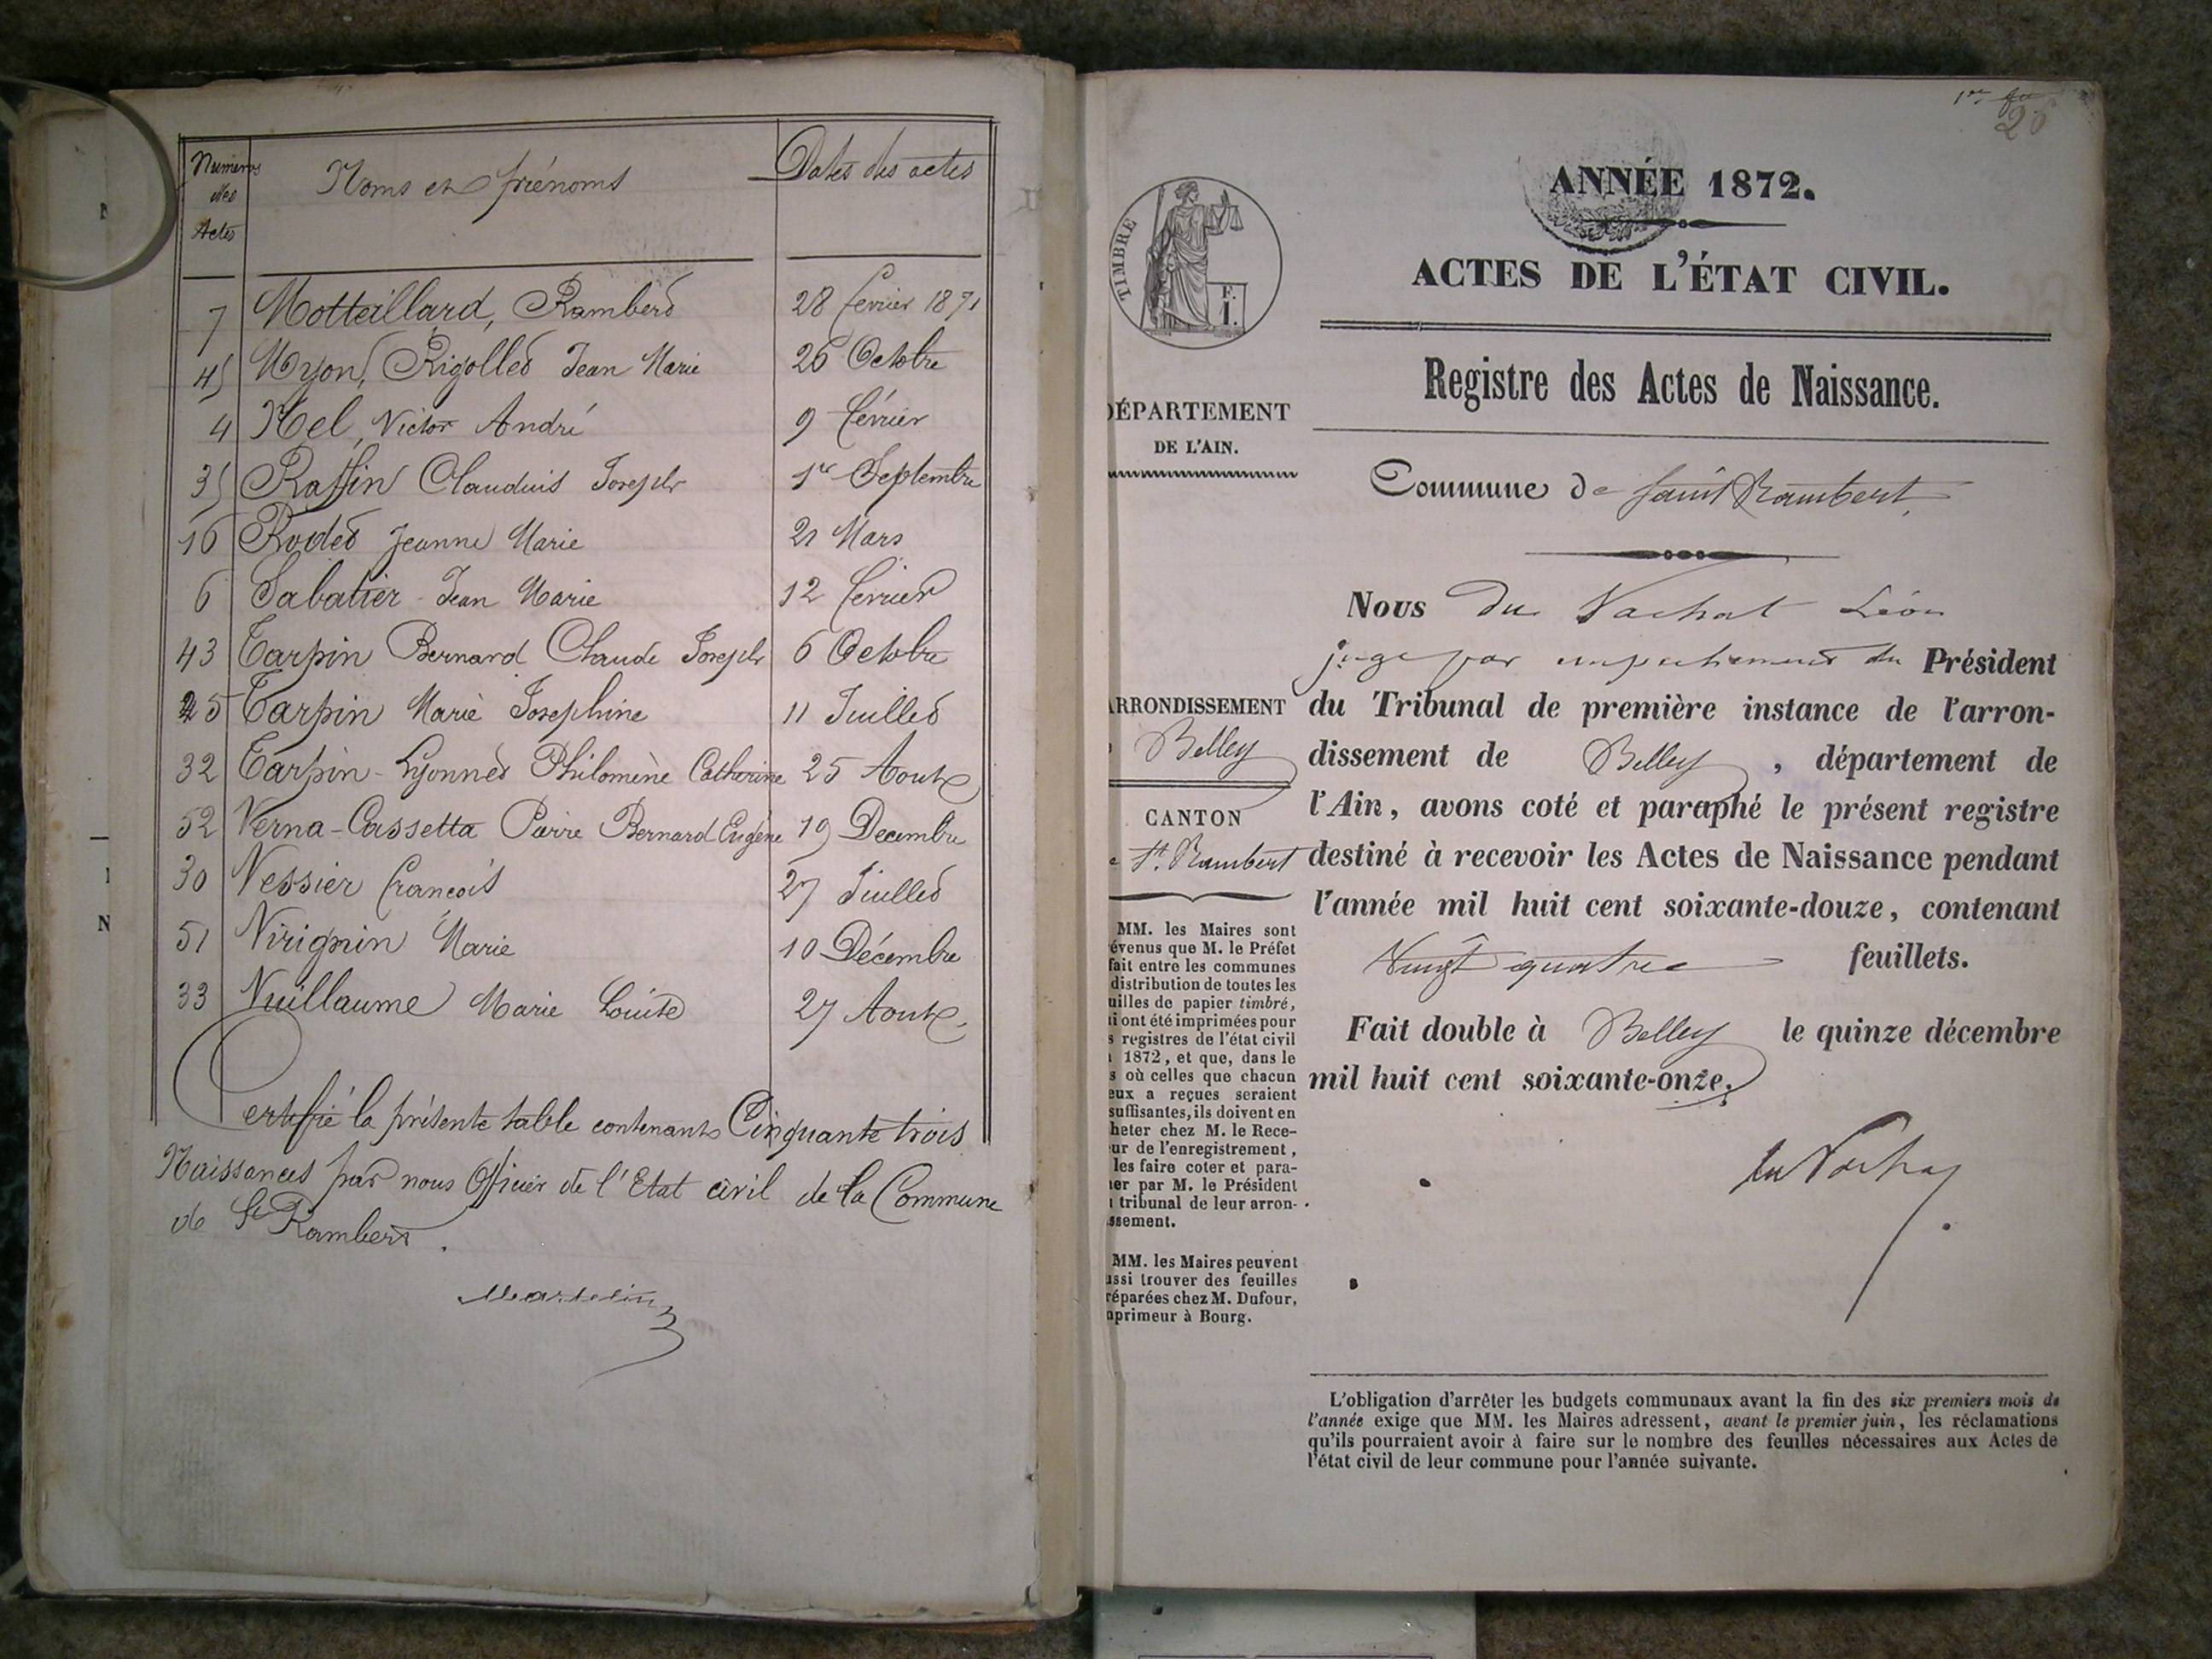 Numéros des Actes | Noms et prénoms | Dates des actes
7 Motteillard, Rambert 28 fevrier 1871
45 Myon, Rigollet Jean Marie 26 Octobre
4 Nel, Victor André 9 février
35 Raffin Claudius Joseph 1er Septembre
16 Rodet Jeanne Marie 21 Mars
6 Sabatier Jean Marie 12 fevrier
43 Tarpin Bernard Claude Joseph 6 Octobre
25 Tarpin Marie Josephine 11 Juillet
32 Tarpin-Lyonnet Philomène Catherine 25 Aout
52 Verna-Cassetta Pierre Bernard Eugène 19 Decembre
30 Vessier francois 27 Juillet
51 Virignin Marie 10 Décembre
33 Vuillaume Marie Louise 27 Aout
Certifié la présente table contenant Cinquante trois
Naissances par nous Officier de l'Etat civil de la Commune
de St Rambert.
1er
26
ANNÉE 1872.
ACTES DE L'ÉTAT CIVIL.
Registre des Actes de Naissance.
TIMBRE
F.
1.
DÉPARTEMENT
DE L'AIN.
Commune de Saint Rambert,
Nous Du Vachat Léon
juge par empechement du Président
du Tribunal de première instance de l'arron-
dissement de Belley, département de
l'Ain, avons coté et paraphé le présent registre
destiné à recevoir les Actes de Naissance pendant
l'année mil huit cent soixante-douze, contenant
Vingt quatre feuillets.
Fait double à Belley le quinze décembre
mil huit cent soixante-onze.
du Vachat
ARRONDISSEMENT
Belley
CANTON
St. Rambert
MM. les Maires sont
évenus que M. le Préfet
fait entre les communes
distribution de toutes les
uilles de papier timbré,
i ont été imprimées pour
s registres de l'état civil
1872, et que, dans le
s où celles que chacun
eux a reçues seraient
suffisantes, ils doivent en
heter chez M. le Rece-
ur de l'enregistrement,
les faire coter et para-
er par M. le Président
tribunal de leur arron-
ssement.
MM. les Maires peuvent
ussi trouver des feuilles
réparées chez M. Dufour,
mprimeur à Bourg.
L'obligation d'arrêter les budgets communaux avant la fin des six premiers mois de
l'année exige que MM. les Maires adressent, avant le premier juin, les réclamations
qu'ils pourraient avoir à faire sur le nombre des feuilles nécessaires aux Actes de
l'état civil de leur commune pour l'année suivante.